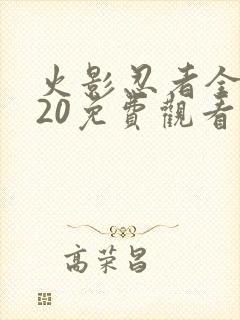 火影忍者全
20免費觀看
高荣昌